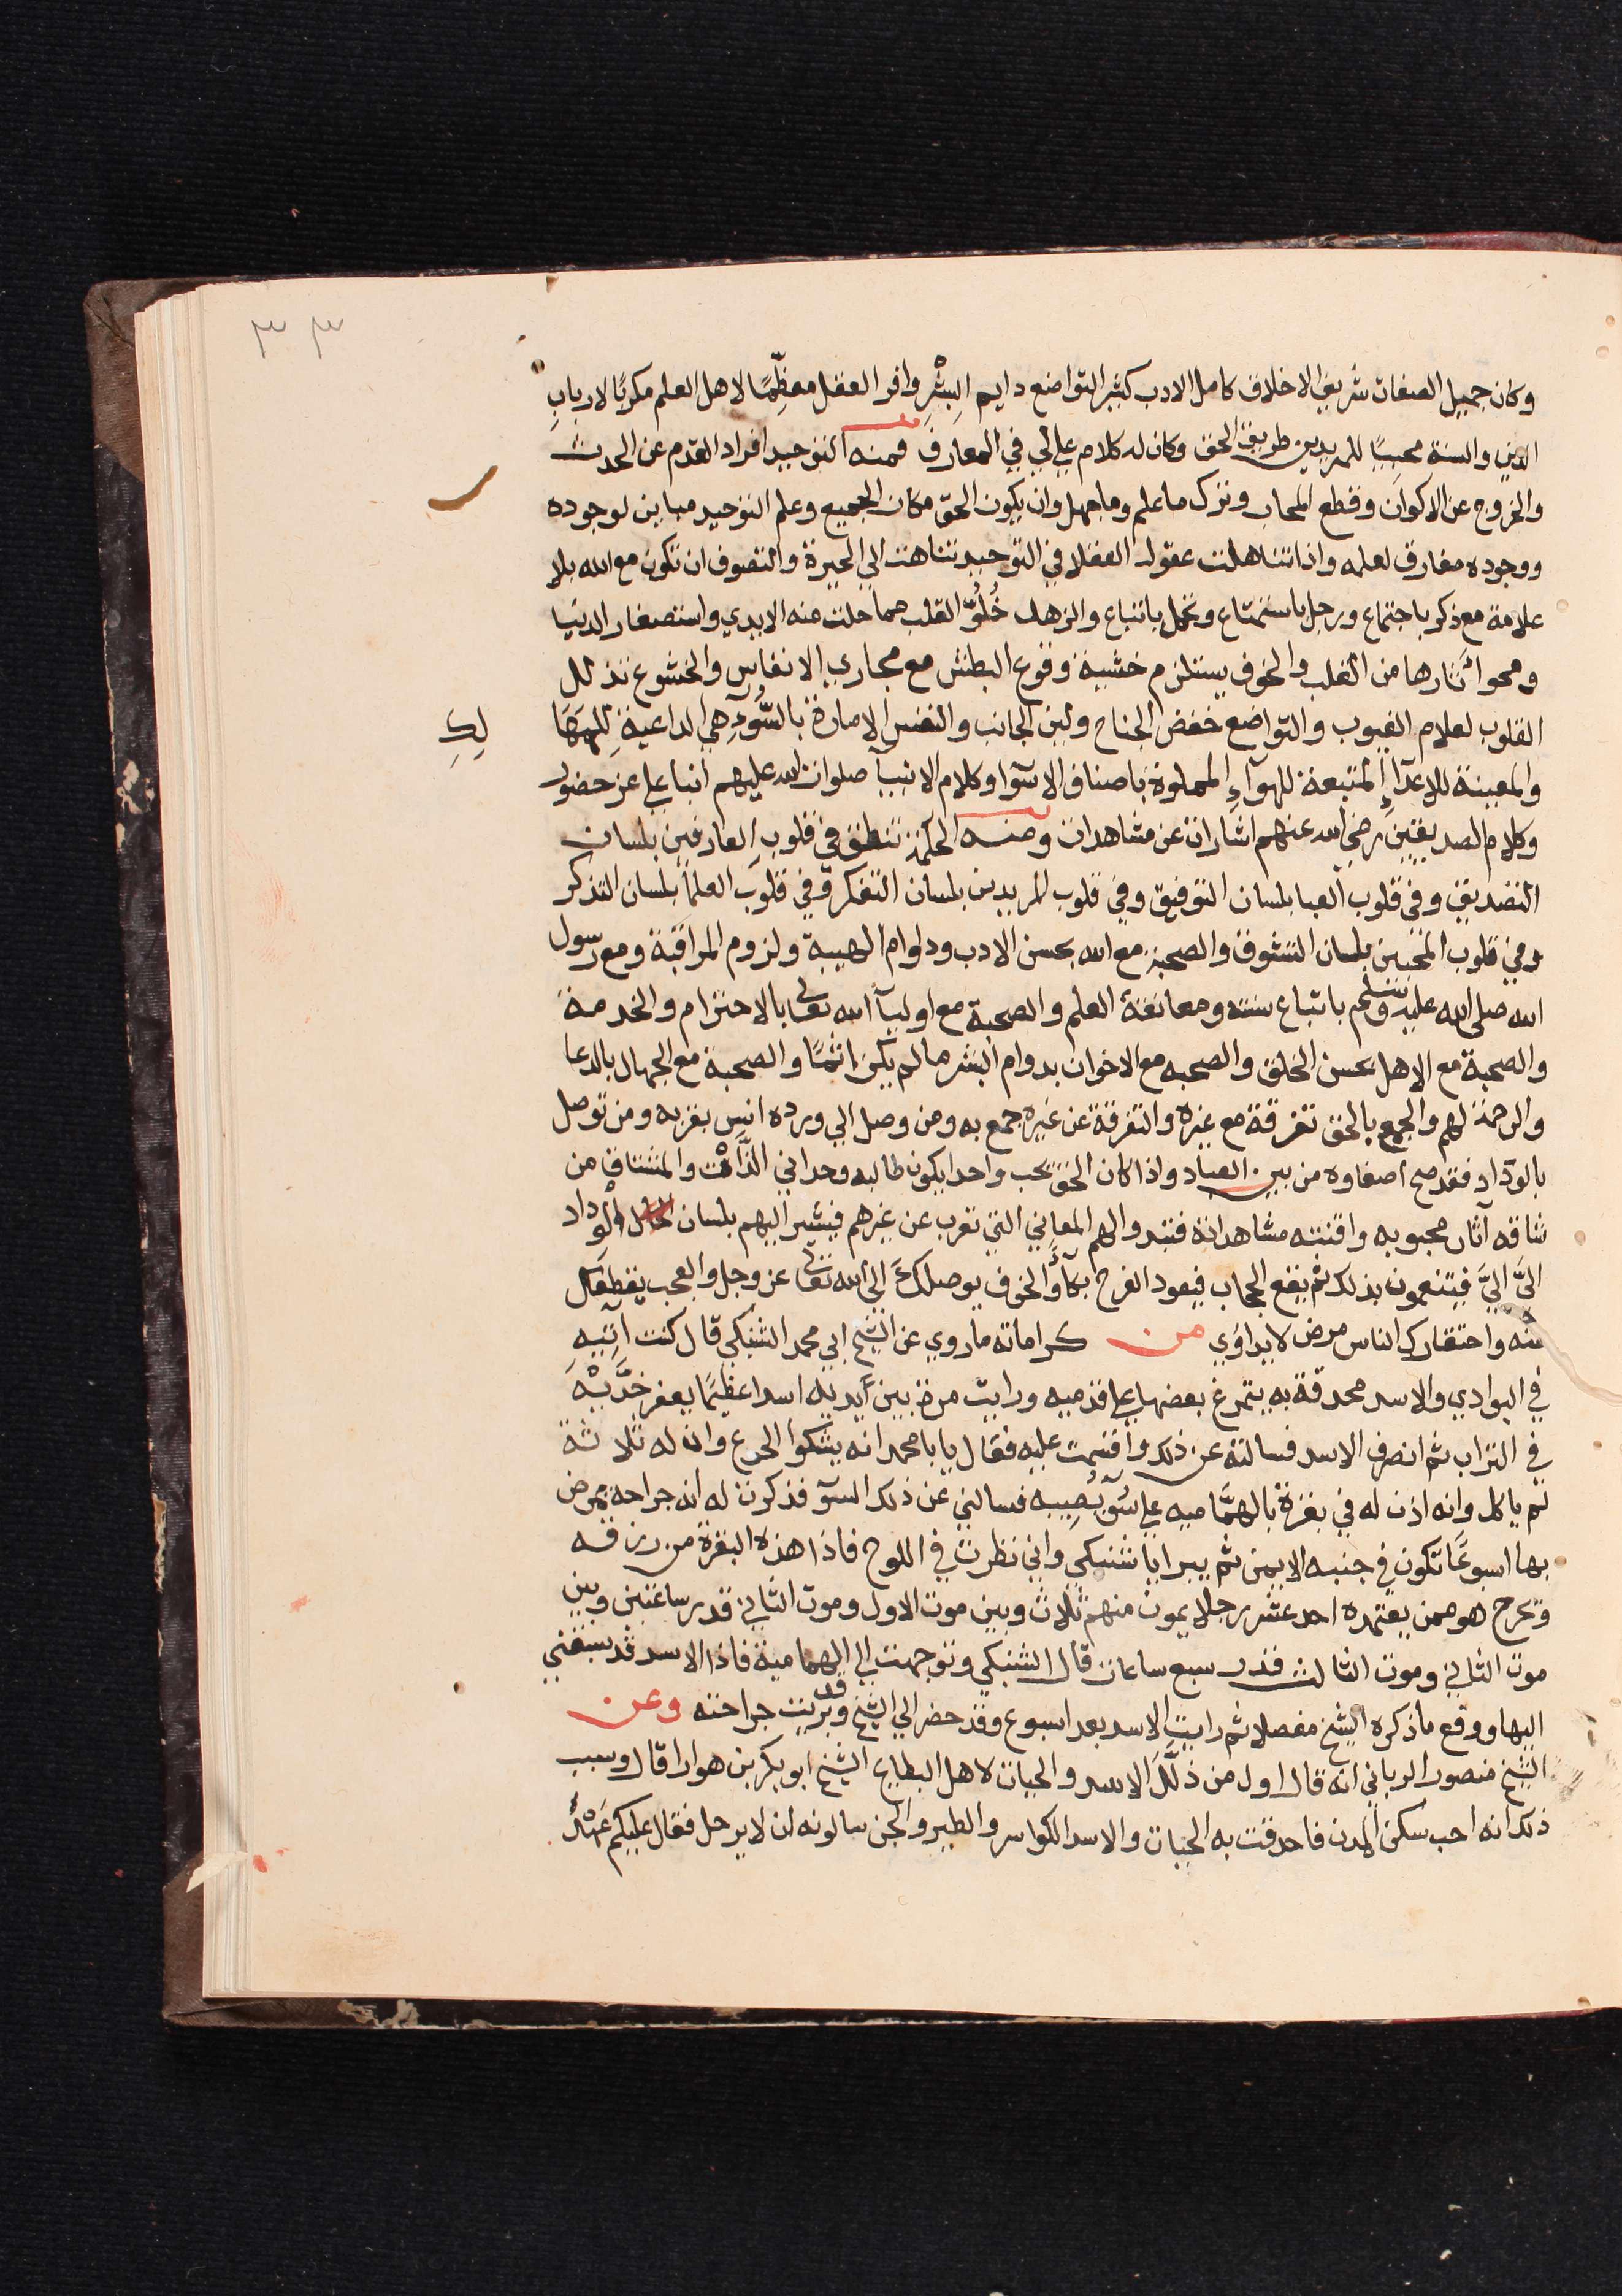 ٣٣
وكان جميل الصفات شريف الاخلاق كامل الادب كثير التواضع دايم البِشْرِ وافر العقل معظِّمًا لاهل العلم مكرمًا لارباب
الدين والسنة محبًا للمريدين طريق الحق وكان له كلام عالي في المعارف فمنه التوحيد افراد القدم عن الحدث
والخروج عن الاكوان وقطع المحاب وترك ما علم وما جهل وان يكون الحق مكان الجميع وعلم التوحيد مباين لوجوده
ووجوده مفارق لعلمه واذا تناهلت عقول العقلا في التوحيد تناهت الي الحيرة والتصوف ان تكون مع الله بلا
علاقة مع ذكر باجتماع ورجل باستمتاع وتحمل باتباع والزهد خُلُوّ القلب مما خلت منه الايدي واستصغار الدنيا
ومحو اثارها من القلب والخوف يستلزم خشية وقوع البطش مع مجاري الانفاس والخشوع تذلل
القلوب لعلام الغيوب والتواضع خفض الجناح ولين الجانب والنفس الامارة بالسُّوءِ هي الداعية للمهَا
لِكِ
والمعينة للاعدآءِ المتبعة للهوآءِ المملوة باصناف الاسوا وكلام الانبيآ صلوات الله عليهم انبا على عن حضور
وكلام الصديقين رضي الله عنهم اشارات عن مشاهدات ومنه الحكمة تنطق في قلوب العارفين بلسان
التصديق وفي قلوب العبا بلسان التوفيق وفي قلوب المريدين بلسان التفكر وفي قلوب العلماً بلسان التذكر
وفي قلوب المحبين بلسان التشوق والصحبة مع الله بحسن الادب ودوام الهيبة ولزوم المراقبة ومع رسول
الله صلى الله عليه وسلم باتباع سنته ومعانقة العلم والصحبة مع اوليآ الله تعالى بالاحترام والخدمة
والصحبة مع الاهل بحسن الخلق والصحبه مع الاخوان بدوام البشر ما لم يكن اثمًا والصحبة مع الجهال بالدعا
والرحمة لهم والجمع بالحق تفرقة مع غيره والتفرقة عن غيره جمع به ومن وصل الي ورده انس بقربه ومن توصل
بالوداد فقد صح اصفاوه من بين العباد واذا كان الحق يحب واحدا يكون طالبه وحداني الذات والمشتاق من
شاقه آثار محبوبه وافنته مشاهداته فتبدوا لهم المعاني التي تغرب عن غيرهم فيشير اليهم بلسان الوداد
اليَّ اليَّ فيتنعمون بذلك ثم يقع الحجاب فيعود الفرح بكآءً والخوف يوصلك الى الله تعالى عز وجل والعجب يقطعك
عنه واحتقارك الناس مرض لا يداوى من كراماته ما روي عن الشيخ ابي محمد الشنبكي قال كنت اتيه
في البوادي والاسد محدقة به يتمرغ بعضها على قدميه ورايت مرة بين يديه اسدا عظيمًا يعفر خدَّيْهِ
في التراب ثم انصرف الاسد فسالته عن ذلك واقسمت عليه فقال يابا محمد انه يشكوا الجوع وان له ثلاثة
لم ياكل وانه اذن له في بقرة بالهمَّاميه على سُوءٍ يُصِيبه فسالني عن ذلك السوٓ فذكرت له انه جراحة يمرض
بها اسبوعًا تكون في جنبه الايمن ثم يبرا يا شنبكي واني نظرت في اللوح فاذا هذه البقرة من رزقه
وتحرج هو ممن يعتمده احد عشر رجلا يموت منهم ثلاث وبين موت الاول وموت الثاني قدر ساعتين وبين
موت الثاني وموت الثالث قدر سبع ساعات قال الشنبكي وتوجهت الي الهمامية فاذا الاسد قد سبقني
اليها ووقع ما ذكره الشيخ مفصلا ثم رايت الاسد بعد اسبوع وقد حضر الي الشيخ وقد برئت جراحته وعن
الشيخ منصور الرباني انه قال اول من ذلَّل الاسد والحيات لاهل البطايح الشيخ ابو بكر بن هوارا قال وسبب
ذلك انه احب سكن المدن فاحدقت به الحيات والاسد الكواسر والطير والجن سالونه ان لا يرحل فقال عليكم عَهْدٌ